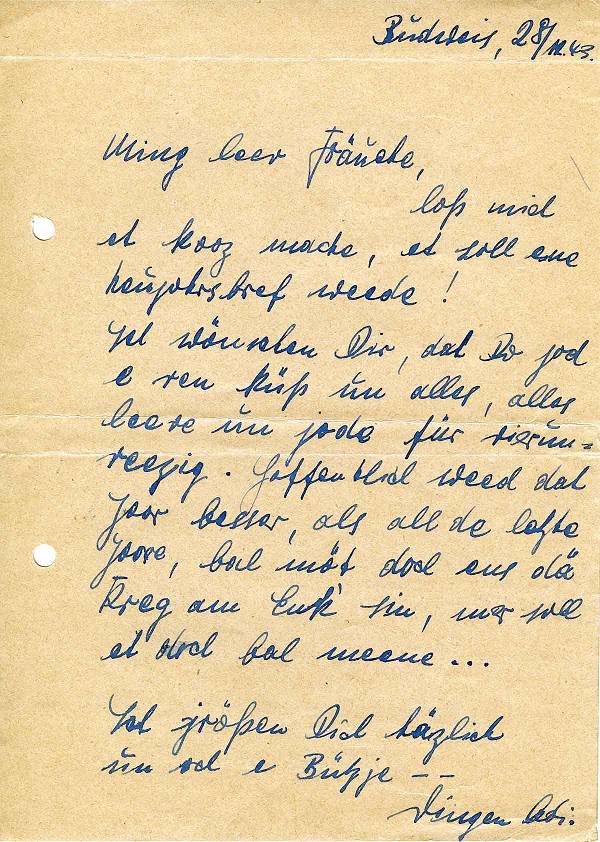 Budweis, 28/12.43.
Ming leev Fräuche,
loß mich
et kooz mache, et soll ene
Neujohrsbref weede!
Ich wönschen Dir, dat Do jod
e ren küß un alles, alles
leeve un jode für vierun=
veezig. Hoffentlich weed dat
Johr besser, als all de letzte
Joore, bal möt doch ens dä
Kreg am Eng sin, mer soll
et doch bal meene...
Ich jrößen Dich häzlich
un och e Bützje --
Dingen Adi.